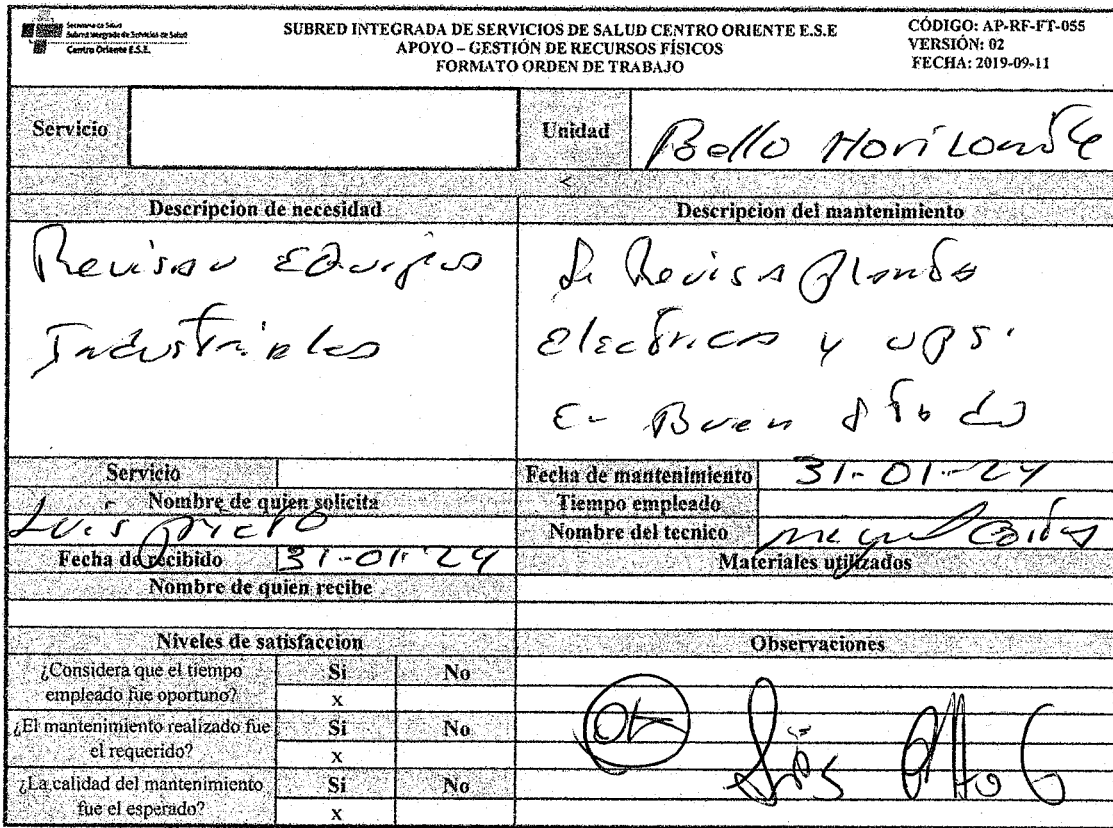 Secretaría de Salud
Subred Integrada de Servicios de Salud
Centro Oriente E.S.E.
SUBRED INTEGRADA DE SERVICIOS DE SALUD CENTRO ORIENTE E.S.E
APOYO – GESTIÓN DE RECURSOS FÍSICOS
FORMATO ORDEN DE TRABAJO
CÓDIGO: AP-RF-FT-055
VERSIÓN: 02
FECHA: 2019-09-11
Servicio
Unidad Bello Horizonte
Descripcion de necesidad
Revisar Equipos
Industriales
Descripcion del mantenimiento
Se Revisa Planta
Electrica y UPS.
En Buen Estado
Servicio
Nombre de quien solicita
Luis
Fecha de recibido 31-01-24
Nombre de quien recibe
Fecha de mantenimiento 31-01-24
Tiempo empleado
Nombre del tecnico Miguel
Materiales utilizados
Niveles de satisfaccion
¿Considera que el tiempo empleado fue oportuno? Si No
x
¿El mantenimiento realizado fue el requerido? Si No
x
¿La calidad del mantenimiento fue el esperado? Si No
x
Observaciones
OK Luis